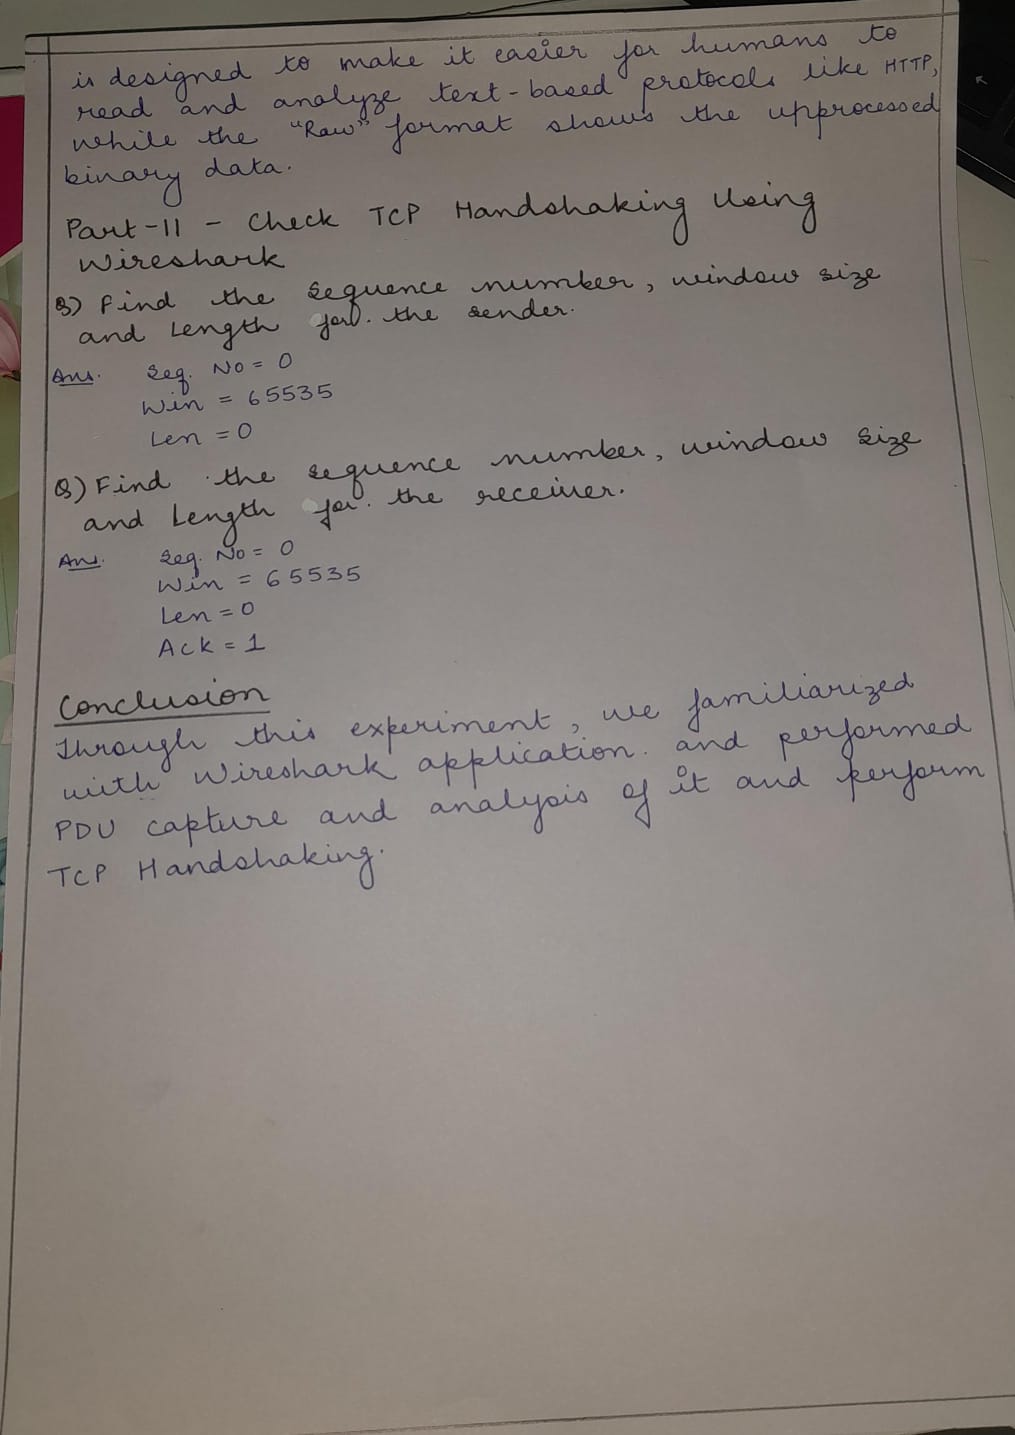 is designed to make it easier for humans to
read and analyze text-based protocols like HTTP,
while the "Raw" format shows the upprocessed
binary data.
Part-II - Check TCP Handshaking Using
Wireshark
Q) Find the sequence number, window size
and Length for. the sender.
Ans. Seq. No = 0
Win = 65535
Len = 0
Q) Find the sequence number, window size
and Length for. the receiver.
Ans. Seq. No = 0
Win = 65535
Len = 0
Ack = 1
Conclusion
Through this experiment, we familiarized
with Wireshark application. and performed
PDU capture and analysis of it and perform
TCP Handshaking.